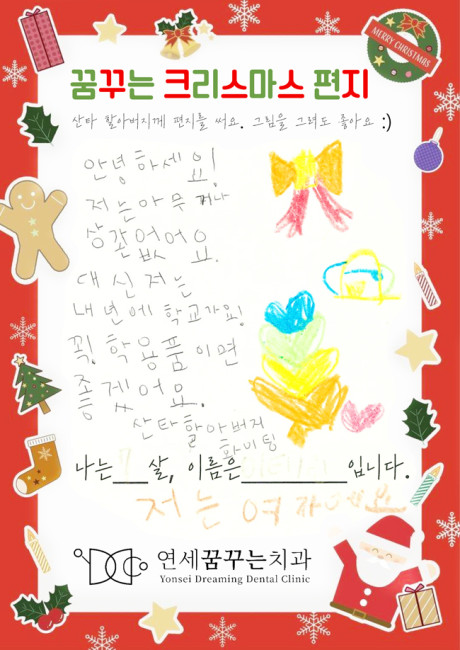 MERRY CHRISTMAS
꿈꾸는 크리스마스 편지
산타 할아버지께 편지를 써요. 그림을 그려도 좋아요 :)
안녕하세요!
저는 아무거나
상관없어요.
대신 저는
내년에 학교가요!
꼭! 학용품이면
좋겠어요.
산타할아버지
화이팅
나는 7살, 이름은 입니다.
저는 여자에요
연세꿈꾸는치과
Yonsei Dreaming Dental Clinic